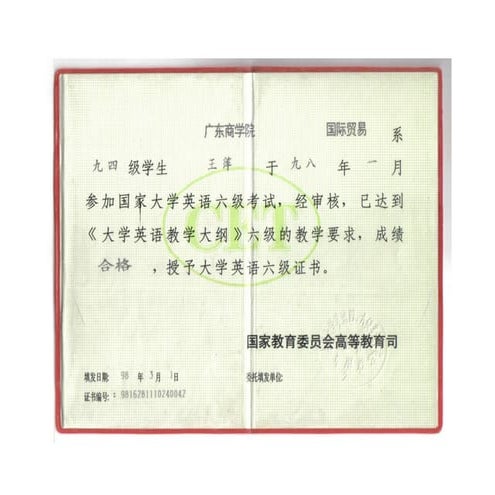 广东商学院 国际贸易 系
九四 级学生 王萍 于 九八 年 一 月
参加国家大学英语六级考试，经审核，已达到
《大学英语教学大纲》六级的教学要求，成绩
合格 ，授予大学英语六级证书。
CET
国家教育委员会高等教育司
填发日期: 98 年 3 月 1 日 委托填发单位:
证书编号: 9816281110240042